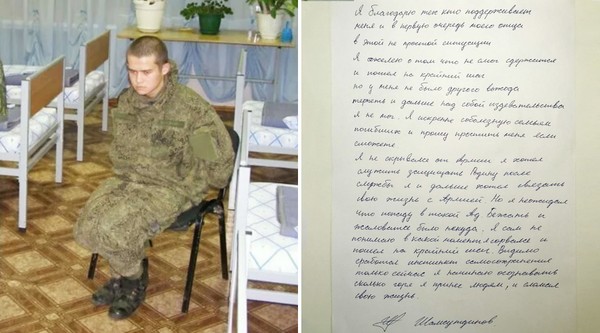 Я благодарю тех кто поддерживает
меня и в первую очередь моего отца
в этой не простой ситуации
Я сожалею о том что не смог сдержатся
и пошел на крайний шаг
но у меня не было другого выхода
терпеть и дальше над собой издевательства
я не мог. Я искренне соболезную семьям
погибших и прошу простить меня если
сможете
Я не скрывался от армии я хотел
служить защищать Родину после
службы я и дальше хотел связать
свою жизнь с Армией. Но я неожидал
что попаду в такой Ад. Бежать и
жаловатся было некуда. Я сам не
понимаю в какой момент я сорвался и
пошел на крайний шаг. Видимо
сработал инстинкт самосохранения
только сейчас я начинаю осозновать
сколько горя я принес людям, и сломал
свою жизнь
Шамсутдинов